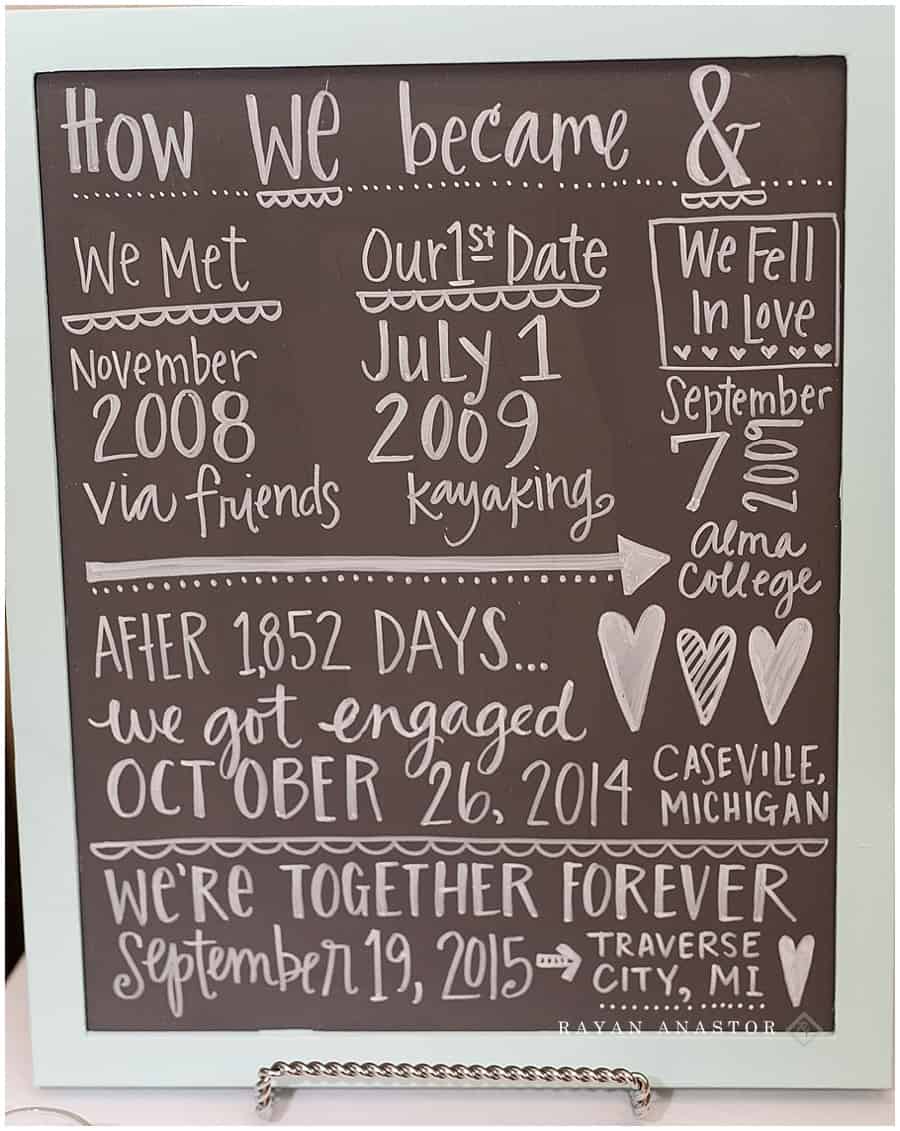 How we became &
We Met
November
2008
via friends
Our 1st Date
July 1
2009
kayaking
We Fell
In Love
September
7 2009
alma
college
AFTER 1,852 DAYS...
we got engaged
OCTOBER 26, 2014
CASEVILLE,
MICHIGAN
WE'RE TOGETHER FOREVER
September 19, 2015
TRAVERSE
CITY, MI
RAYAN ANASTOR